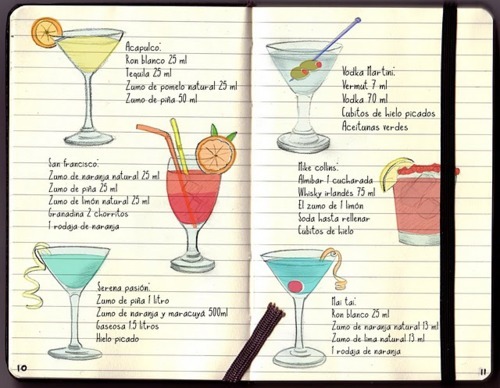 Acapulco:
Ron blanco 25 ml
Tequila 25 ml
Zumo de pomelo natural 25 ml
Zumo de piña 50 ml
San francisco:
Zumo de naranja natural 25 ml
Zumo de piña 25 ml
Zumo de limón natural 25 ml
Granadina 2 chorritos
1 rodaja de naranja
Serena pasión:
Zumo de piña 1 litro
Zumo de naranja y maracuyá 500ml
Gaseosa 1.5 litros
Hielo picado
10
Vodka Martini:
Vermut 7 ml
Vodka 70 ml
Cubitos de hielo picados
Aceitunas verdes
Mike collins:
Almibar 1 cucharada
Whisky irlandés 75 ml
El zumo de 1 limón
Soda hasta rellenar
Cubitos de hielo
Mai tai:
Ron blanco 25 ml
Zumo de naranja natural 13 ml
Zumo de lima natural 13 ml
1 rodaja de naranja
11